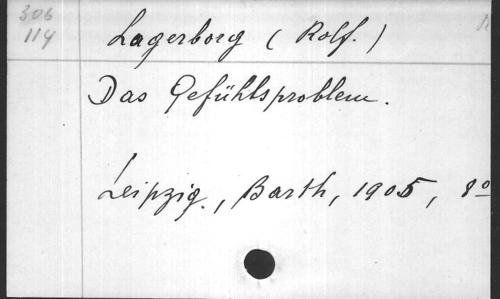 306
114
Lagerborg (Rolf.)
Das Gefühlsproblem.
Leipzig., Barth, 1905, 8º